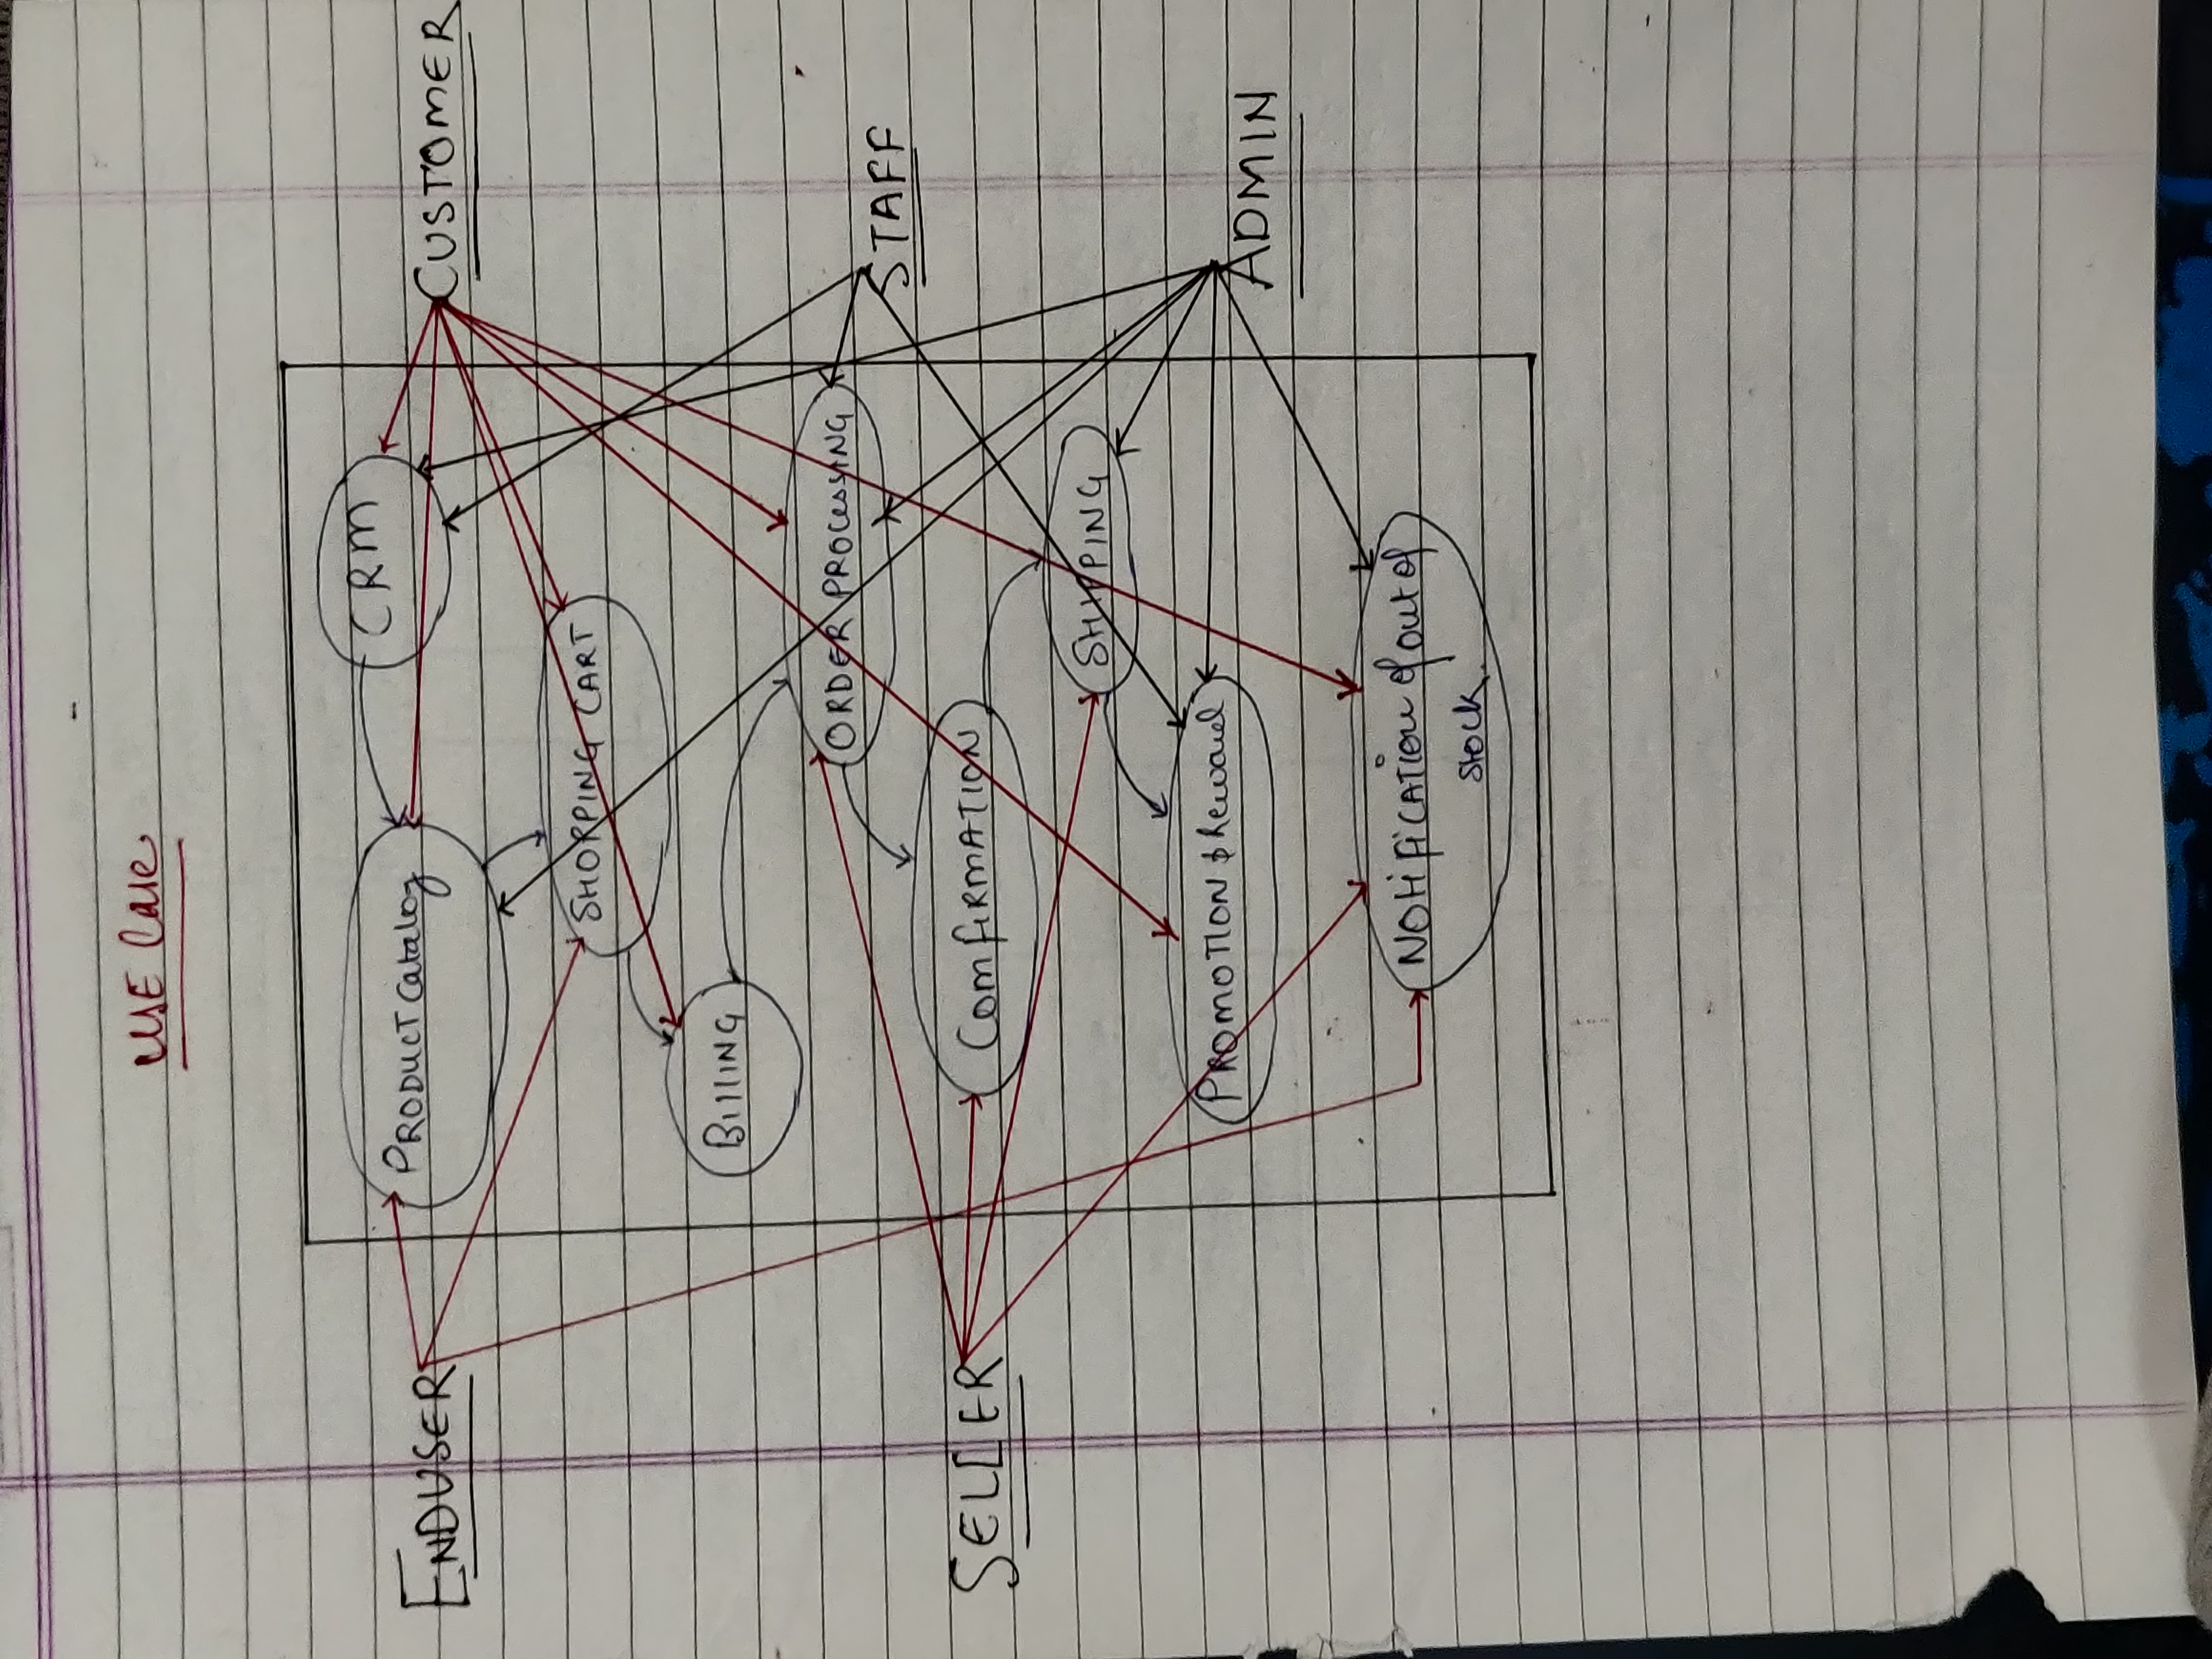 USE Case
CRM
PRODUCT Catalog
ENDUSER
CUSTOMER
SHOPPING CART
BIllING
ORDER PROCessING
STAFF
SELLER
ComfiRMATION
SHIPPING
PROMOTION & Reward
ADMIN
NOtifiCATion of out of
stock.